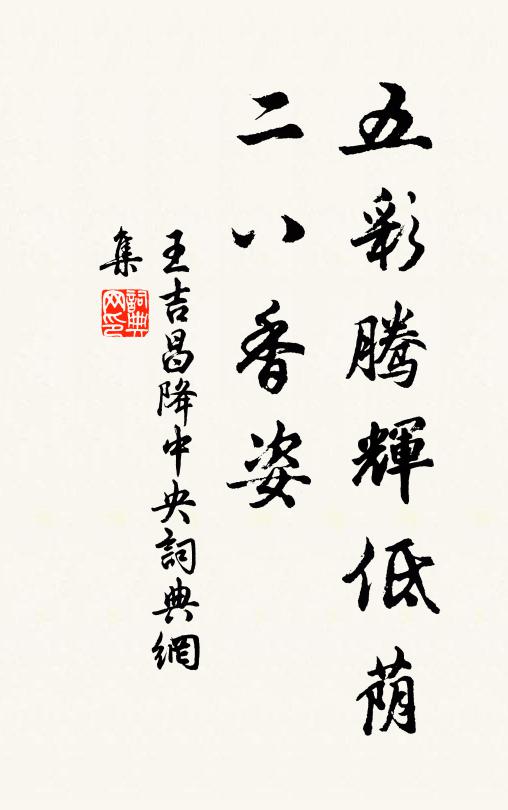 五彩腾輝低荫
二八香姿
王吉昌降中央詞典網
集
詞典
网印